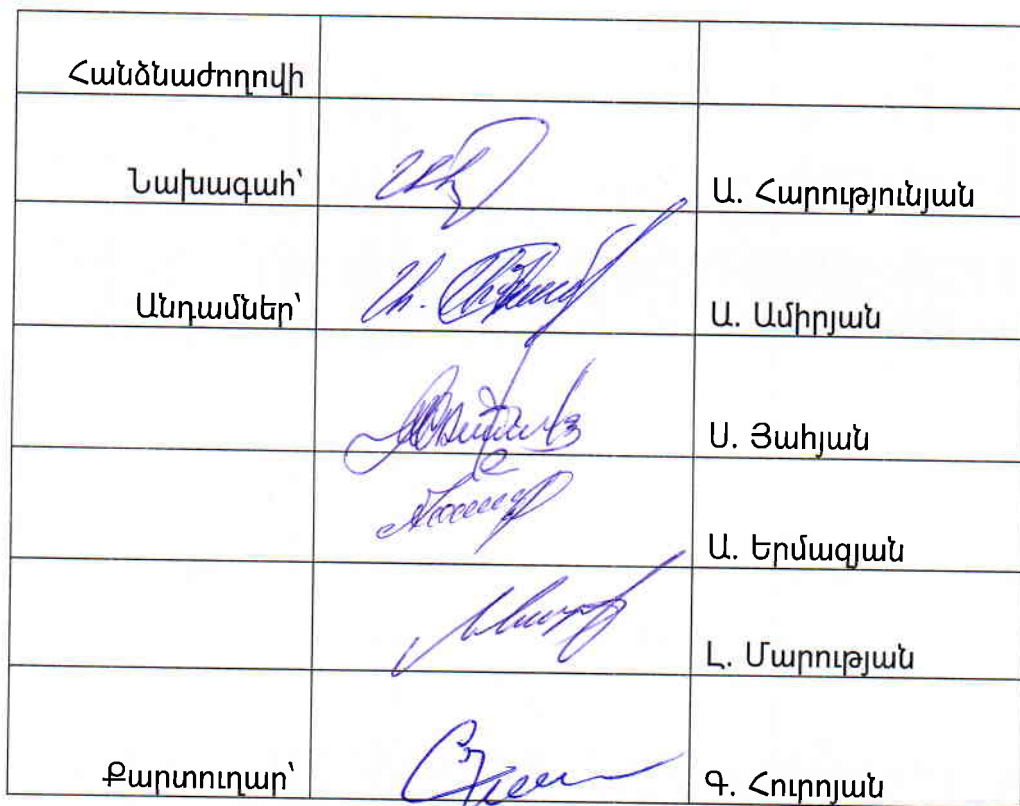 Հանձնաժողովի
Նախագահ՝ Ա. Հարությունյան
Անդամներ՝ Ա. Ամիրյան
Ս. Յահյան
Ա. Երմազյան
Լ. Մարության
Քարտուղար՝ Գ. Հուրոյան